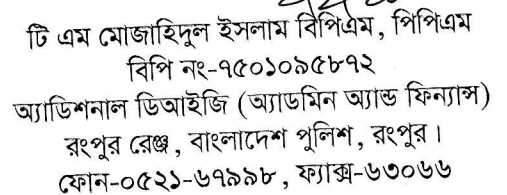 টি এম মোজাহিদুল ইসলাম বিপিএম, পিপিএম
বিপি নং-৭৫০১০৯৫৮৭২
অ্যাডিশনাল ডিআইজি (অ্যাডমিন অ্যান্ড ফিন্যান্স)
রংপুর রেঞ্জ, বাংলাদেশ পুলিশ, রংপুর।
ফোন-০৫২১-৬৭৯৯৮, ফ্যাক্স-৬৩০৬৬